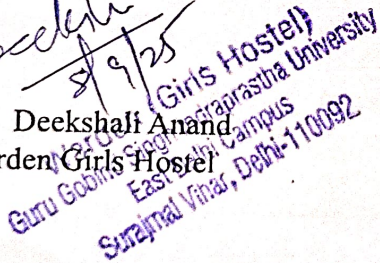 8/9/25
Deekshali Anand
rden Girls Hostel
(Girls Hostel)
Guru Gobind Singh Indraprastha University
East Delhi Campus
Surajmal Vihar, Delhi-110092